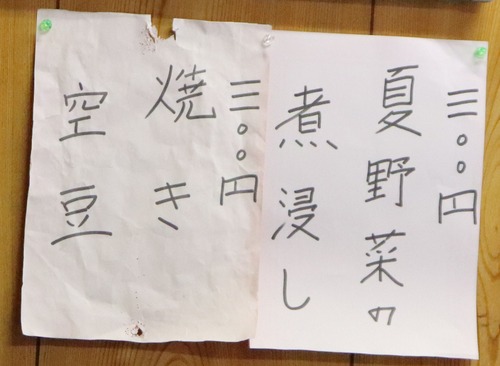 三〇〇円
夏野菜の
煮浸し
三〇〇円
焼き
空豆